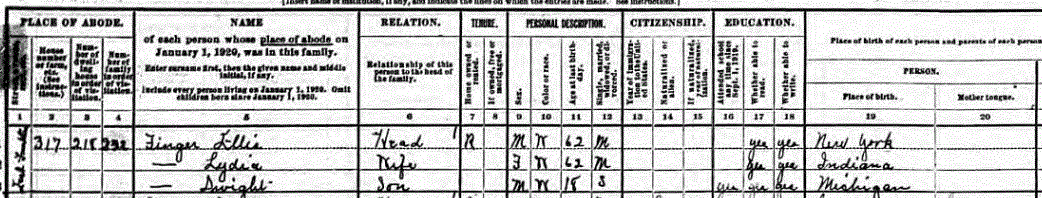 [Insert name of institution, if any, and indicate the lines on which the entries are made. See instructions.]
PLACE OF ABODE. NAME RELATION. TENURE. PERSONAL DESCRIPTION. CITIZENSHIP. EDUCATION.
of each person whose place of abode on January 1, 1920, was in this family.
Enter surname first, then the given name and middle initial, if any.
Include every person living on January 1, 1920. Omit children born since January 1, 1920.
Relationship of this person to the head of the family.
House number or farm, etc. (See instructions.)
Number of dwelling house in order of visitation.
Number of family in order of visitation.
Home owned or rented.
If owned, free or mortgaged.
Sex.
Color or race.
Age at last birthday.
Single, married, widowed, or divorced.
Year of immigration to the United States.
Naturalized or alien.
If naturalized, year of naturalization.
Attended school any time since Sept. 1, 1919.
Whether able to read.
Whether able to write.
Place of birth of each person and parents of each person
PERSON.
Place of birth. Mother tongue.
1 2 3 4 5 6 7 8 9 10 11 12 13 14 15 16 17 18 19 20
317 218 232 Finger Ellis Head 1 R M W 62 M yes yes New York
— Lydia Wife F W 62 M yes yes Indiana
— Dwight Son M W 18 S yes yes yes Michigan